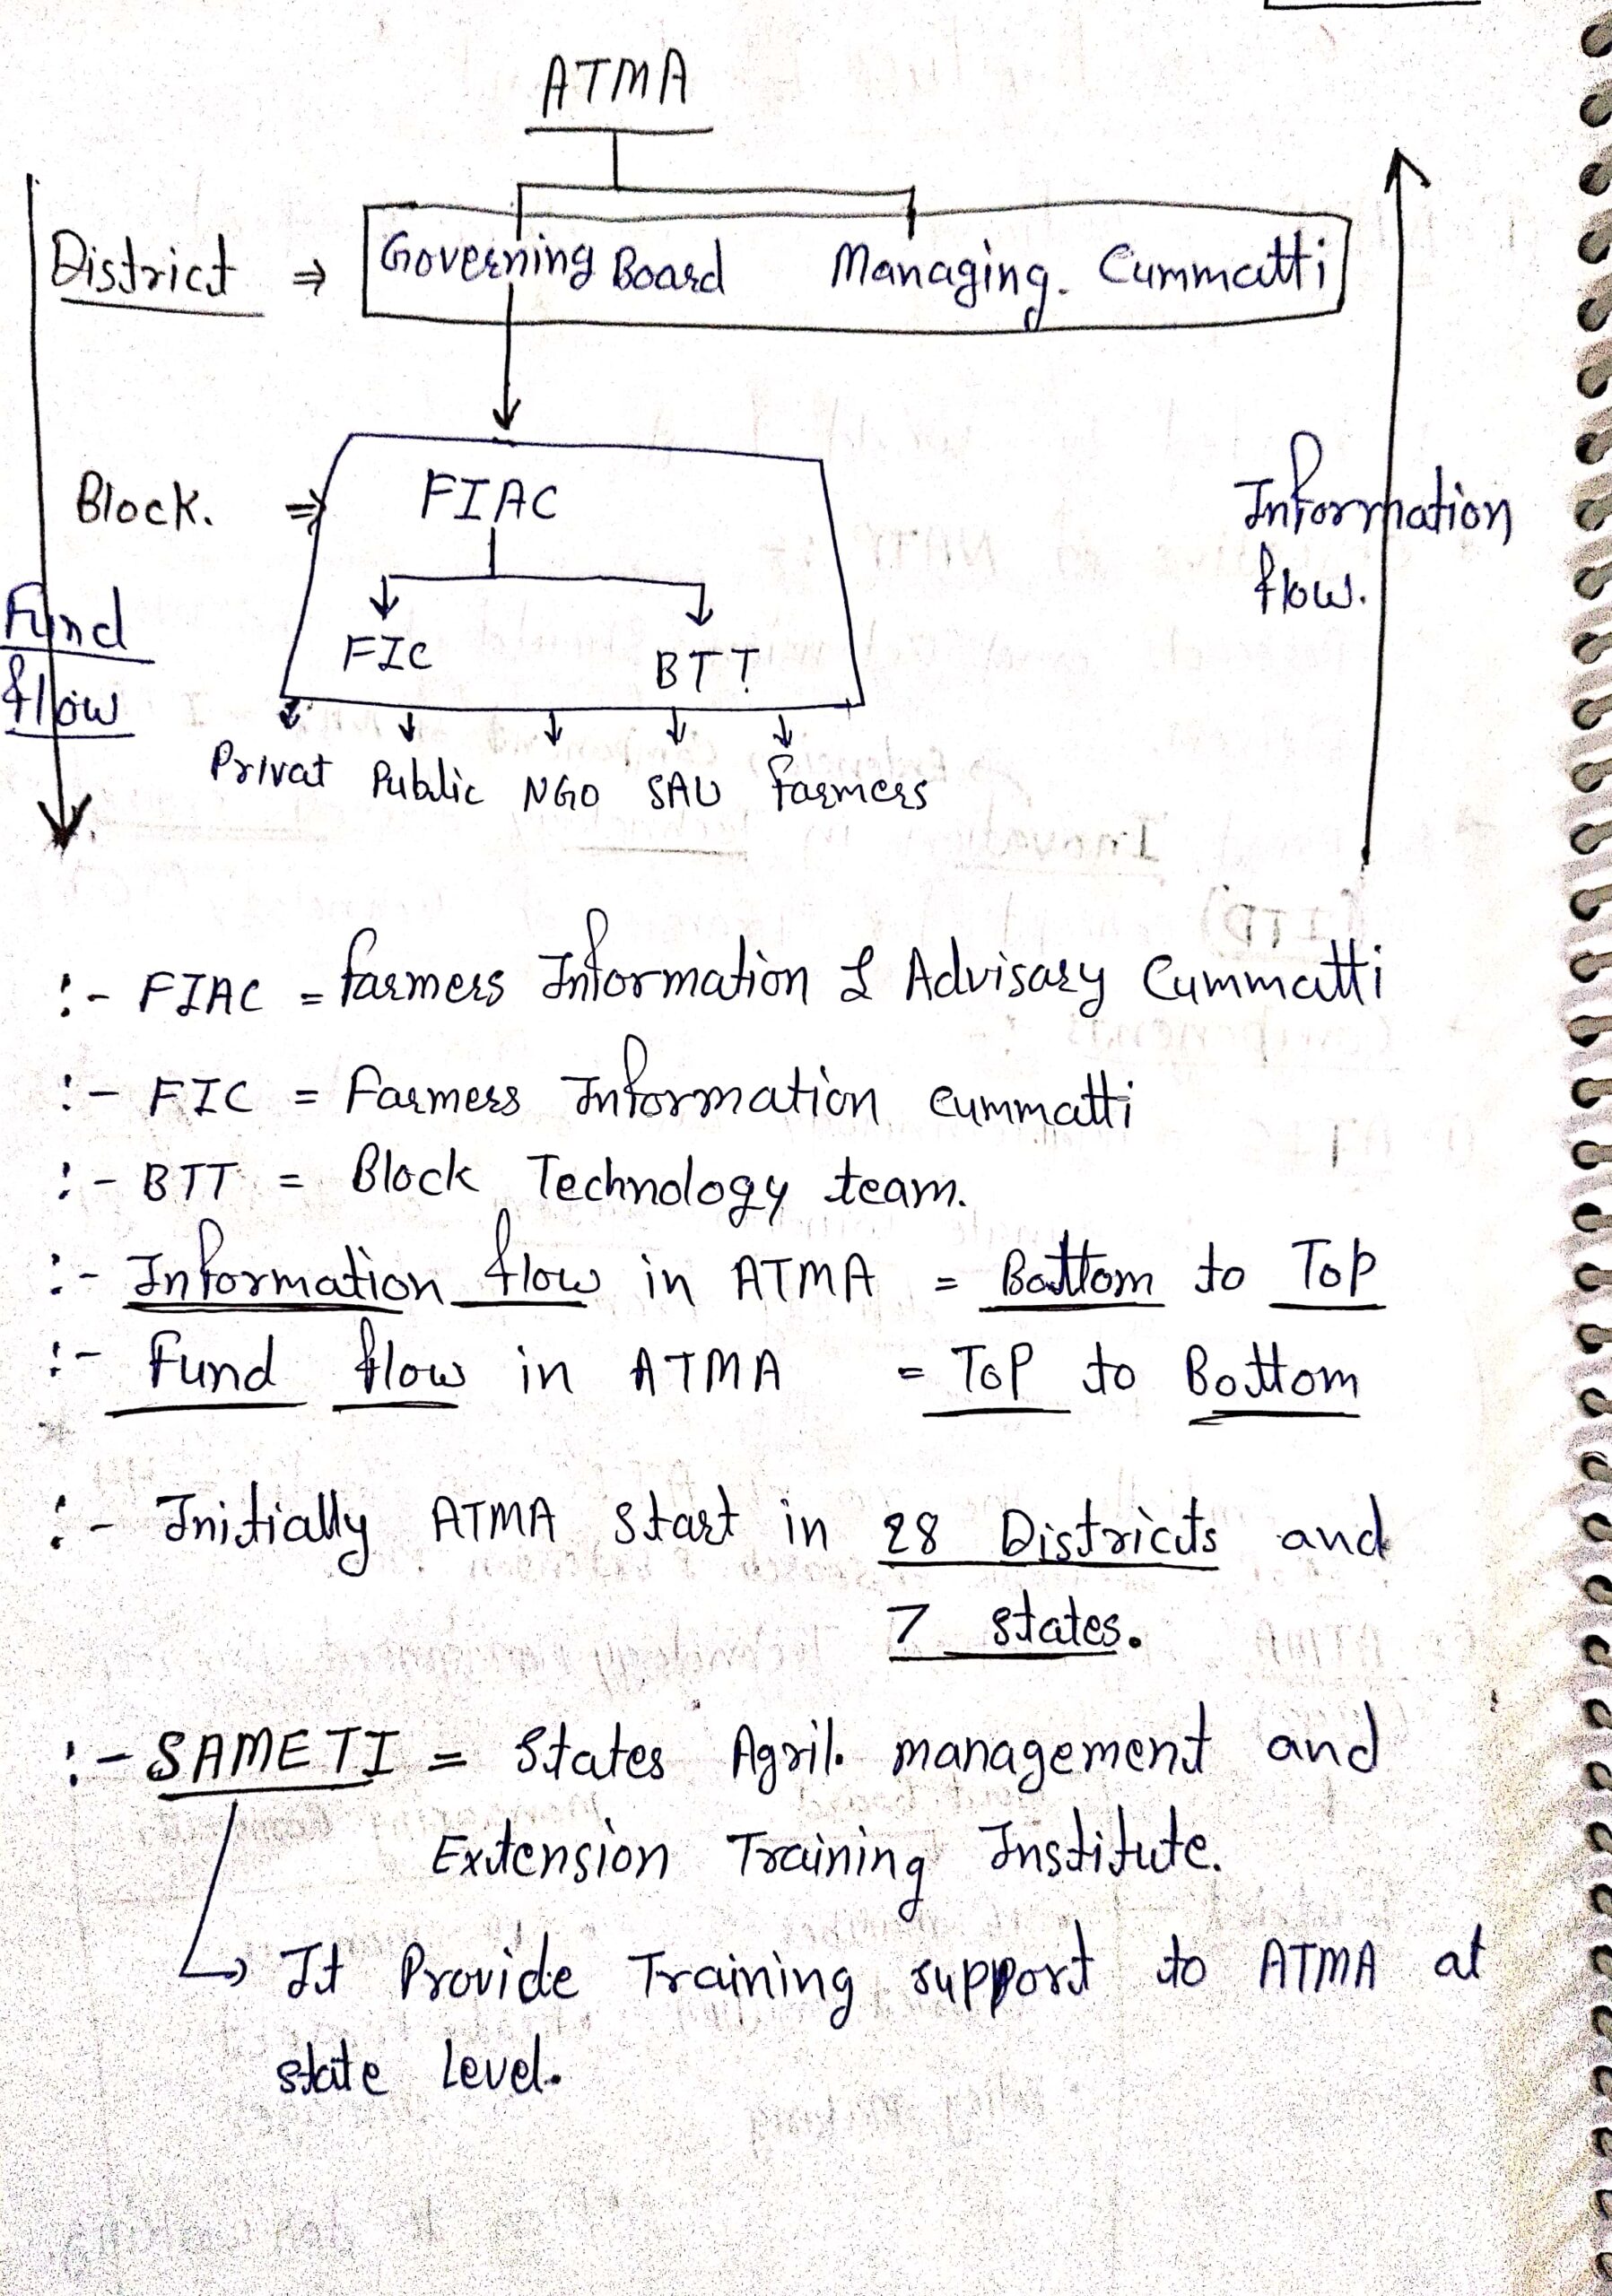 ATMA
District ⇒ Governing Board Managing. Cummatti
Block. ⇒ FIAC
Information
flow.
Fund
flow
FIC BTT
Privat Public NGO SAU farmers
:- FIAC = farmers Information & Advisary Cummatti
:- FIC = Farmers Information cummatti
:- BTT = Block Technology team.
:- Information flow in ATMA = Bottom to Top
:- Fund flow in ATMA = Top to Bottom
:- Initially ATMA start in 28 Districts and
7 states.
:- SAMETI = States Agril. management and
Extension Training Institute.
↳ It Provide Training support to ATMA at
state Level.